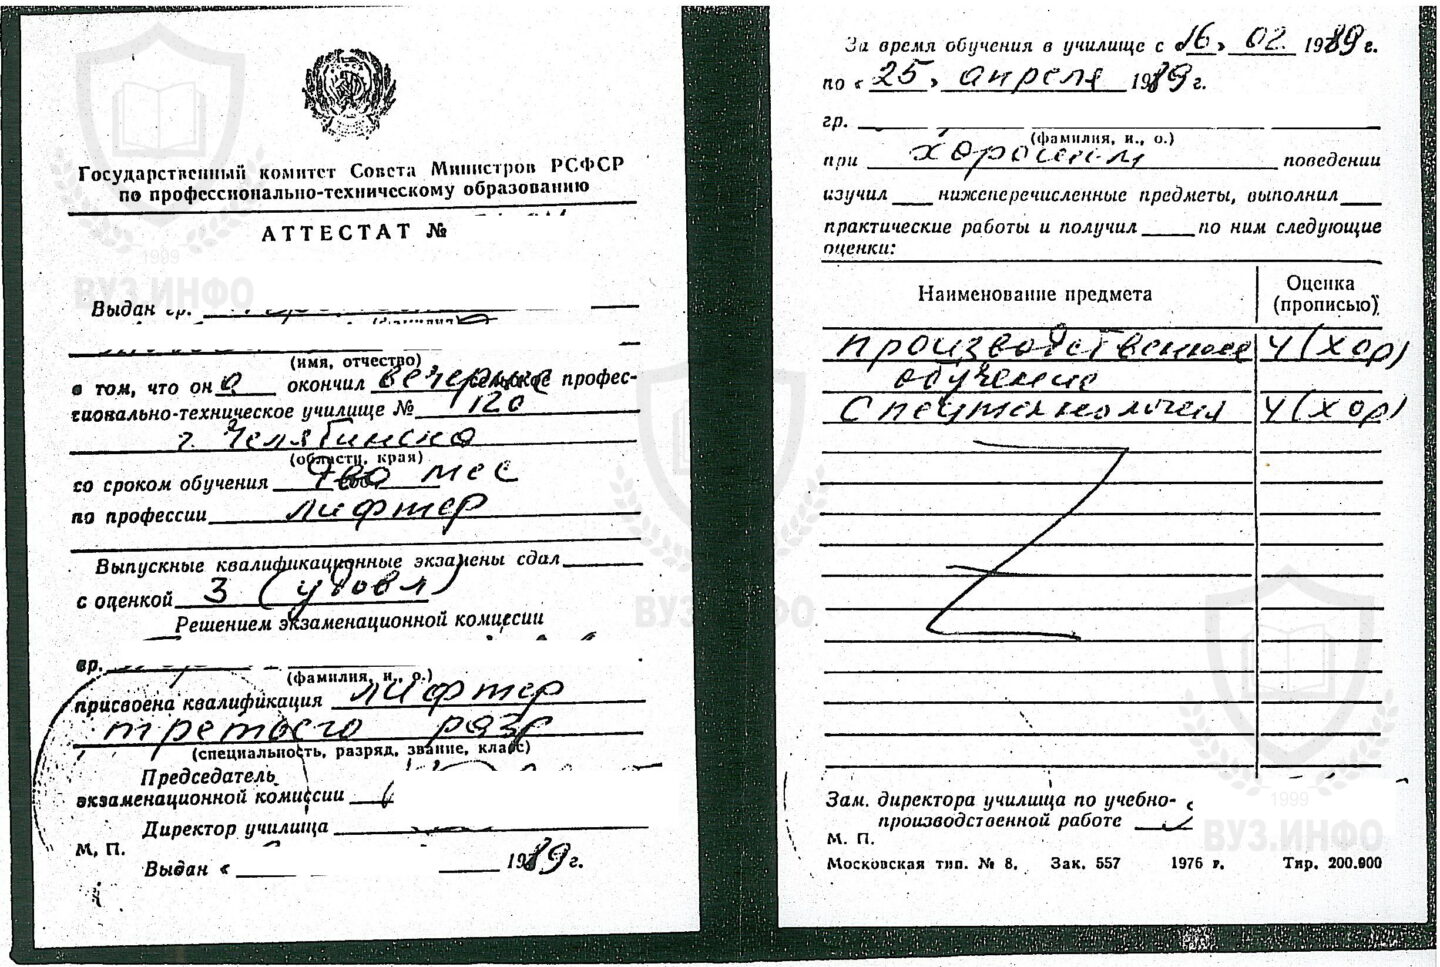 Государственный комитет Совета Министров РСФСР
по профессионально-техническому образованию
АТТЕСТАТ №
1999
ВУЗ.ИНФО
Выдан гр.
(фамилия)
(имя, отчество)
в том, что он а окончил вечернее сельское профес-
сионально-техническое училище № 120
г. Челябинска
(области, края)
со сроком обучения два мес
по профессии лифтер
Выпускные квалификационные экзамены сдал
с оценкой 3 (удовл)
Решением экзаменационной комиссии
гр.
(фамилия, и., о.)
присвоена квалификация лифтер
третьего разр
(специальность, разряд, звание, класс)
Председатель
экзаменационной комиссии
Директор училища
М. П.
Выдан « 1989 г.
За время обучения в училище с «16» 02. 1989 г.
по «25» апреля 1989 г.
гр.
(фамилия, и., о.)
при хорошем поведении
изучил нижеперечисленные предметы, выполнил
практические работы и получил по ним следующие
оценки:
Наименование предмета Оценка (прописью)
производственное 4 (хор)
обучение
спецтехнология 4 (хор)
ВУЗ.ИНФО
Зам. директора училища по учебно-
производственной работе
М. П.
1999
ВУЗ.ИНФО
Московская тип. № 8. Зак. 557 1976 г. Тир. 200.000